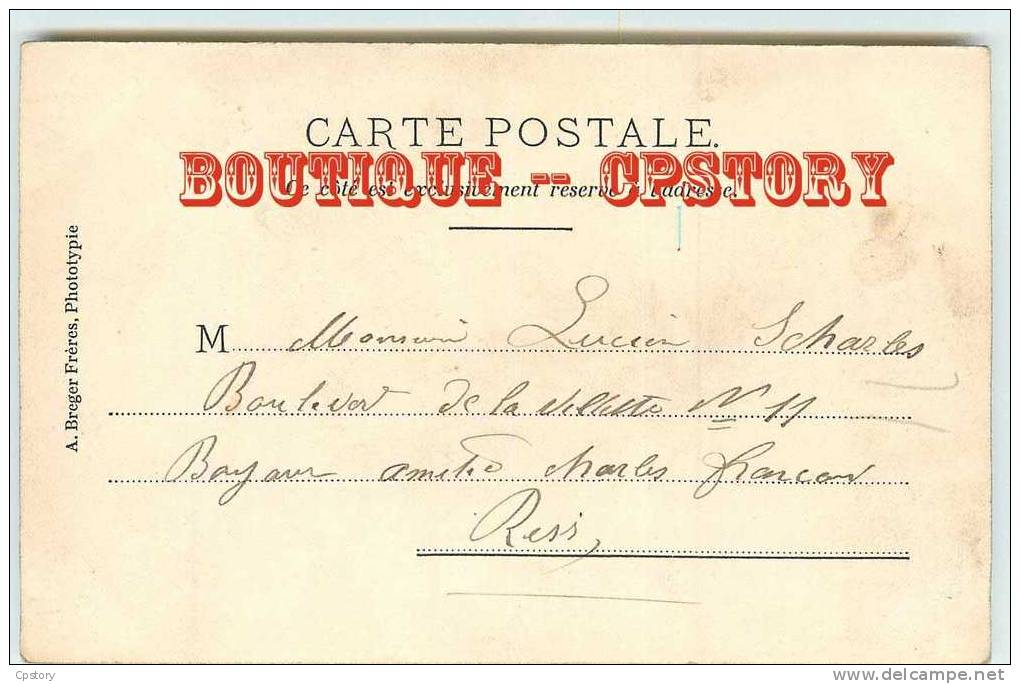 CARTE POSTALE.
BOUTIQUE -- CPSTORY
Ce côté est exclusivement réservé à l'adresse.
A. Breger Frères, Phototypie
M Monsieur Lucien Scharles
Boulevard de la Villette N° 11
amitié Charles
Cpstory
www.delcampe.net